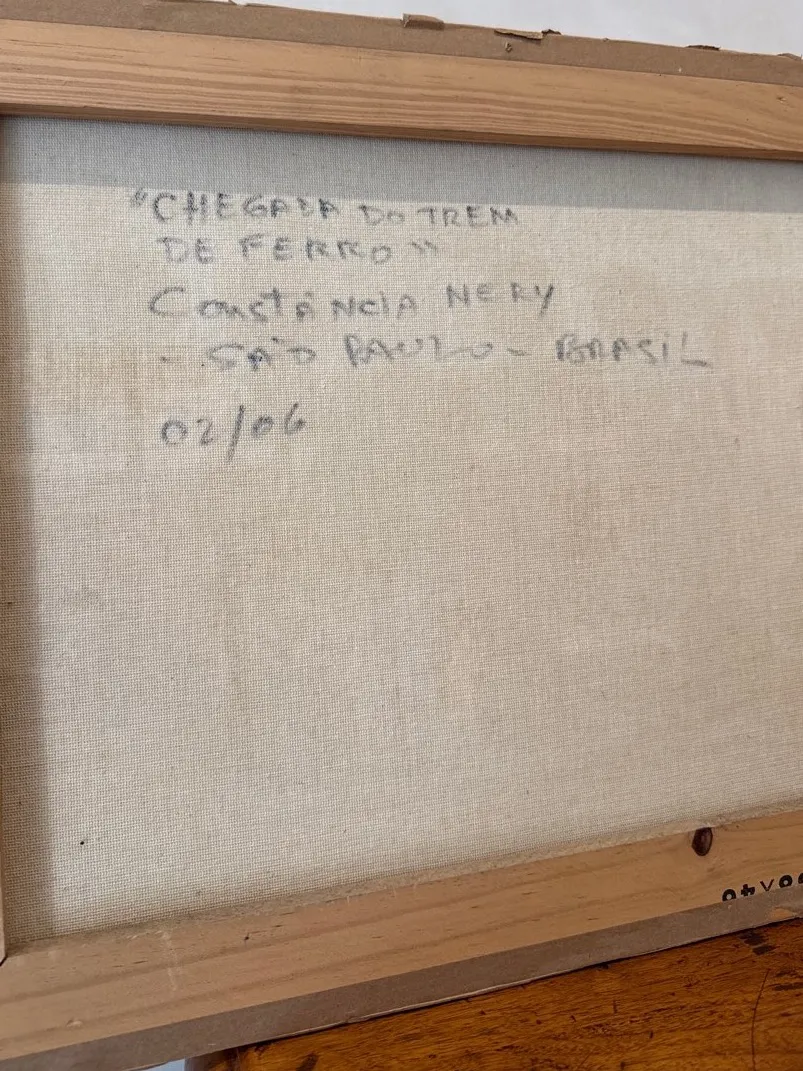 "CHEGADA DO TREM
DE FERRO"
CONSTÂNCIA NERY
- SÃO PAULO - BRASIL
02/06